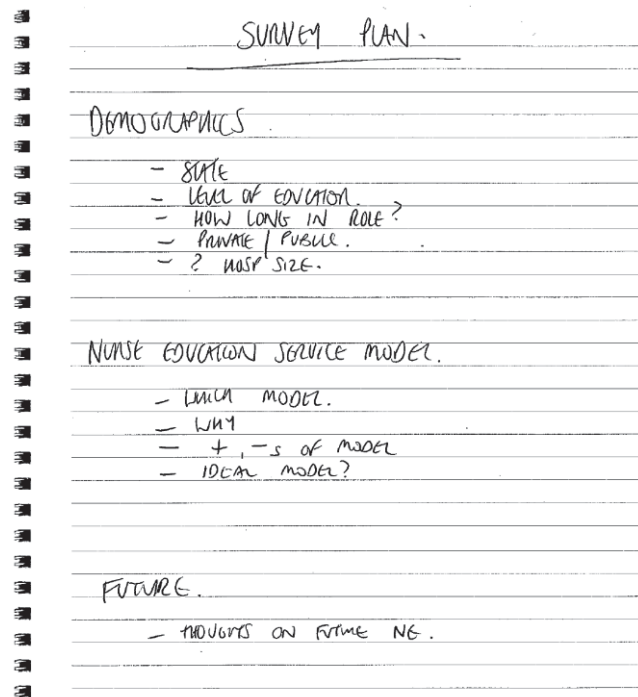 SURVEY PLAN.
DEMOGRAPHICS
- STATE
- LEVEL OF EDUCATOR.
- HOW LONG IN ROLE?
- PRIVATE / PUBLIC.
- ? HOSP SIZE.
NURSE EDUCATION SERVICE MODEL.
- WHICH MODEL.
- WHY
- +, -s OF MODEL
- IDEAL MODEL?
FUTURE.
- THOUGHTS ON FUTURE NE.